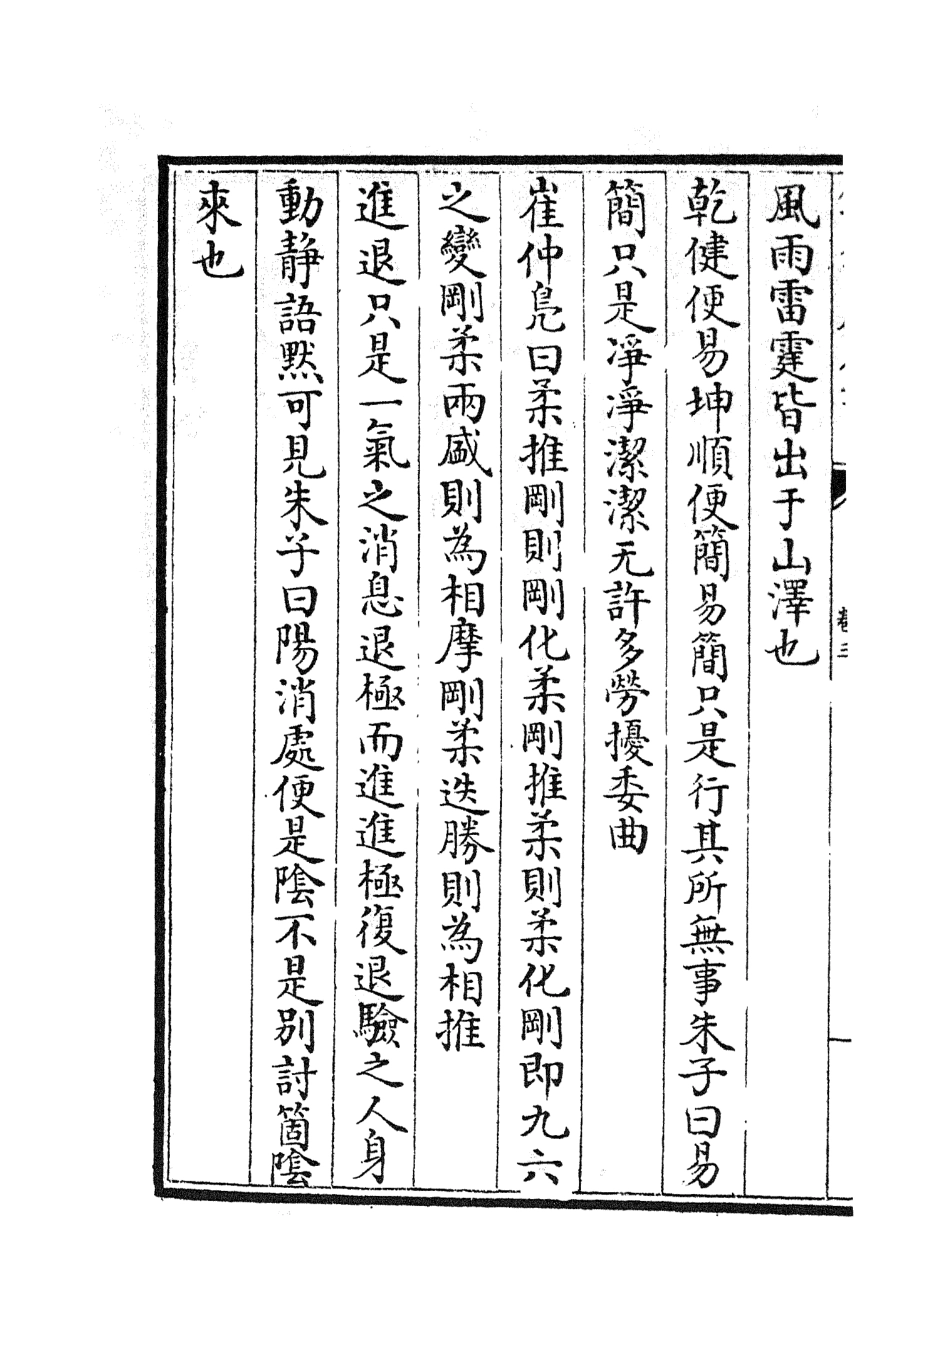 風雨雷霆皆出于山澤也
乾健便易坤順便簡易簡只是行其所無事朱子曰易
簡只是凈凈潔潔无許多勞擾委曲
崔仲鳧曰柔推剛則剛化柔剛推柔則柔化剛即九六
之變剛柔兩盛則為相摩剛柔迭勝則為相推
進退只是一氣之消息退極而進進極復退驗之人身
動静語默可見朱子曰陽消處便是陰不是别討箇陰
來也
卷三